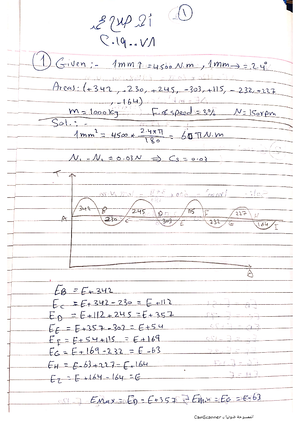 ①
C.19..V1
① Given:- 1mm↑ = 4500 N.m, 1mm→ = 2.4°
Areas: (+342, -230, +245, -303, +115, -232, +227
, -164)
m = 1000 kg F.of speed = 3% N = 150 rpm
Sol:-
1mm² = 4500 * 2.4*π/180 = 60 π N.m
N₁ - N₂ = 0.03N ⇒ Cs = 0.03
T
A 342 B 230 C 245 D 303 E 115 F 232 G 227 H 164 I
θ
E_B = E+342
E_C = E+342-230 = E+112
E_D = E+112+245 = E+357
E_E = E+357-303 = E+54
E_F = E+54+115 = E+169
E_G = E+169-232 = E-63
E_H = E-63+227 = E+164
E_I = E+164-164 = E
E_Max = E_D = E+357 & E_min = E_G = E-63
CamScanner